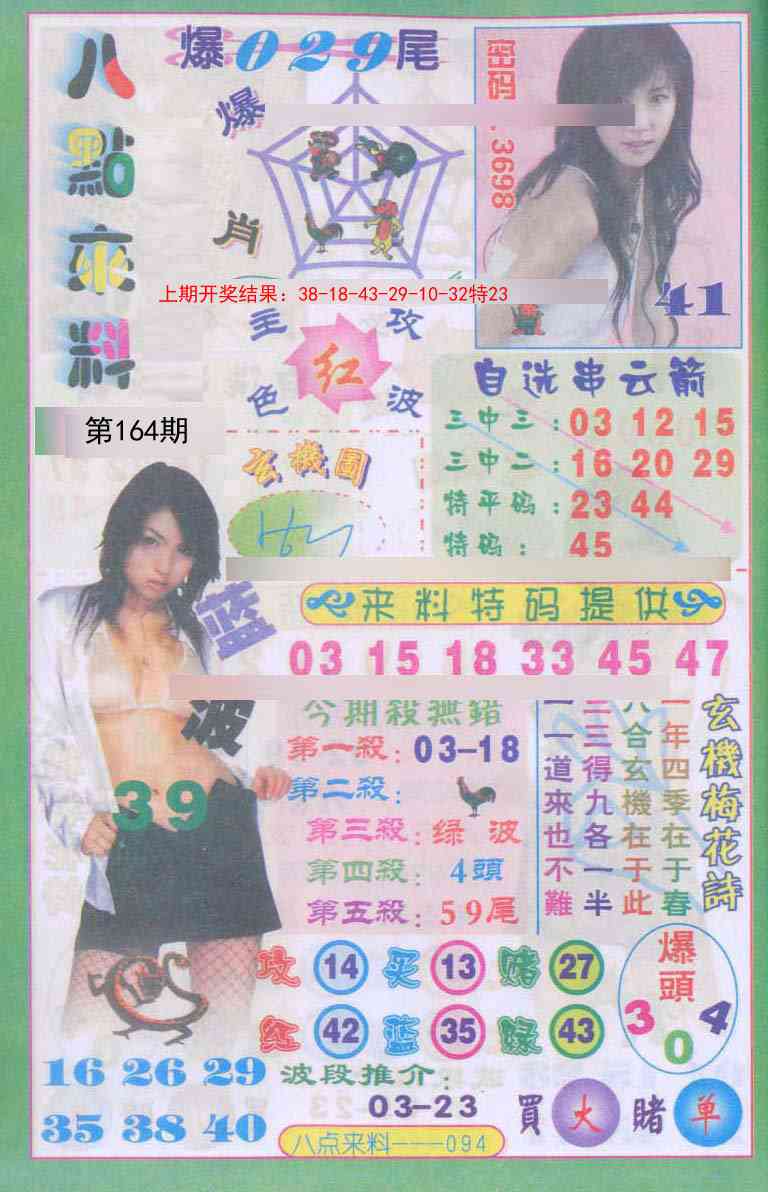 八點來料
爆029尾
爆
肖
密码.3698
41
上期开奖结果：38-18-43-29-10-32特23
主 攻
红
色 波
第164期
自选串云箭
三中三：03 12 15
三中二：16 20 29
特平码：23 44
特码：45
玄機圖
蓝波
39
来料特码提供
03 15 18 33 45 47
今期殺無錯
第一殺：03-18
第二殺：
第三殺：绿波
第四殺：4頭
第五殺：59尾
玄機梅花詩
一年四季在于春
六合玄機在于此
二三得九各一半
一一道來也不難
攻 14 买 13 赌 27
红 42 蓝 35 绿 43
爆頭
3 0 4
16 26 29
35 38 40
波段推介：
03-23
買 大 賭 单
八点来料----094